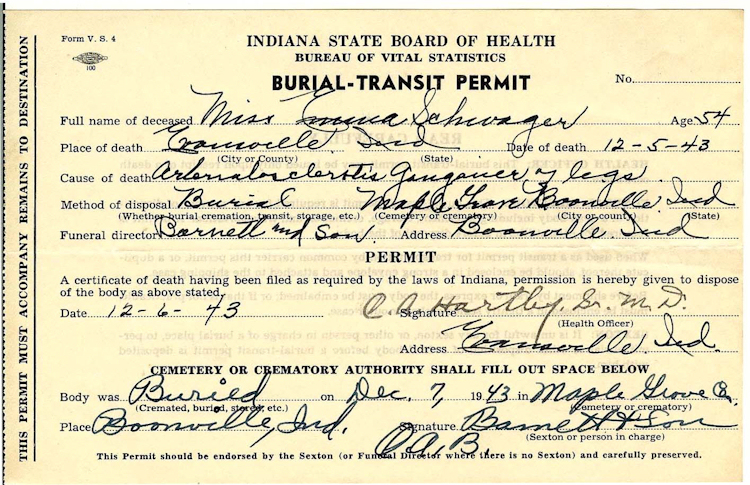 Form V. S. 4
100
INDIANA STATE BOARD OF HEALTH
BUREAU OF VITAL STATISTICS
BURIAL-TRANSIT PERMIT
No.
Full name of deceased Miss Emma Schwager Age 54
Place of death Evansville Ind Date of death 12-5-43
(City or County) (State)
Cause of death legs
Method of disposal Burial Maple Grove Boonville Ind
(Whether burial cremation, transit, storage, etc.) (Cemetery or crematory) (City or county) (State)
Funeral director Barnett and Son Address Boonville Ind
PERMIT
A certificate of death having been filed as required by the laws of Indiana, permission is hereby given to dispose
of the body as above stated.
Date 12-6-43 Signature Hartley, M.D.
(Health Officer)
Address Evansville Ind.
CEMETERY OR CREMATORY AUTHORITY SHALL FILL OUT SPACE BELOW
Body was Buried on Dec. 7, 1943 in Maple Grove
(Cremated, buried, stored, etc.) (Cemetery or crematory)
Place Boonville, Ind. Signature Barnett & Son
(Sexton or person in charge)
This Permit should be endorsed by the Sexton (or Funeral Director where there is no Sexton) and carefully preserved.
THIS PERMIT MUST ACCOMPANY REMAINS TO DESTINATION